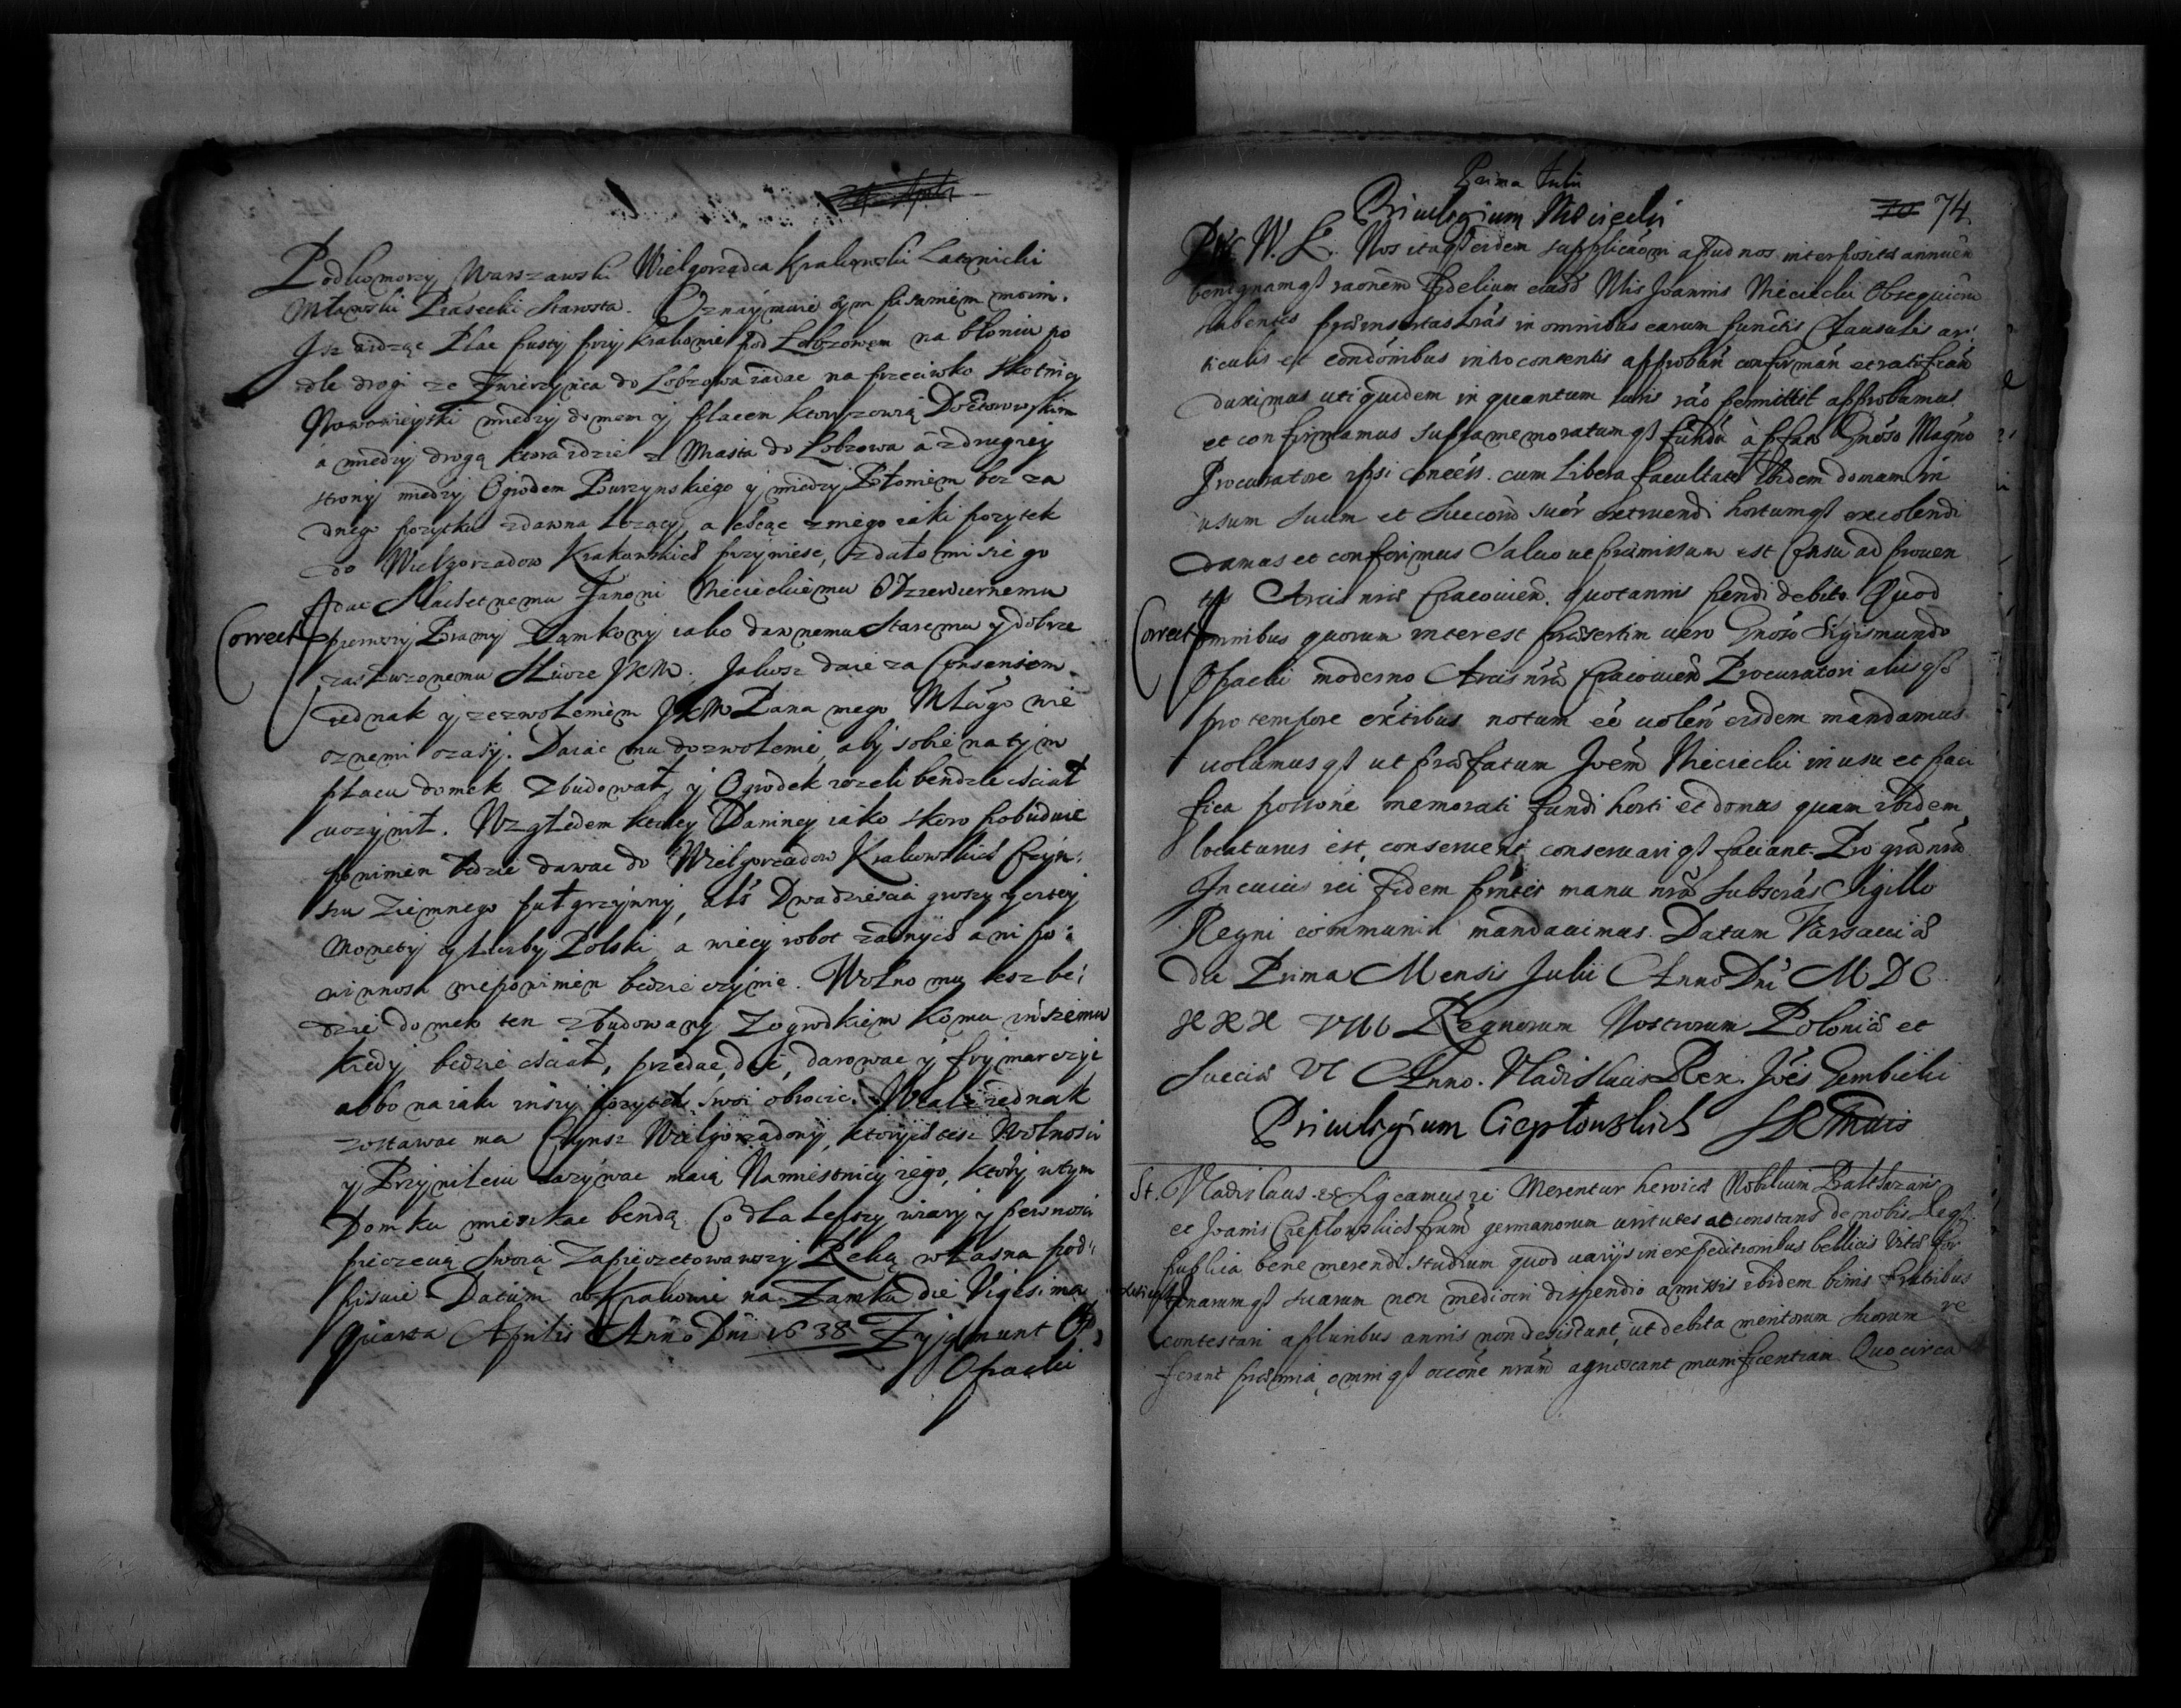 24 Aprilis
Podkomorzy Warszawski Wielgorządca Krakowski Latowicki
Mławski Piasecki Starosta. Oznaymuię tym pisaniem moim.
Isz widząc Plac pusty przy Krakowie pod Łobzowem na błoniu po
dle drogi ze Zwierzyńca do Łobzowa iadąc na przeciwko Skotnicy
Nowowieyski między domem y placem ktory zowią Doctorowskim
a między drogą ktora idzie z Miasta do Łobzowa a z drugiey
strony między Ogrodem Burzynskiego y między Błoniem bez ża
dnego pozytku zdawna lezący, a chcąc z niego iaki pozytek
do Wielgorządow Krakowskich przyniesc, zdało mi sie go
dac Slachetnemu Janowi Miecieckiemu Odzwiernemu
Correct pierwszy Bramy Zamkowy iako dawnemu Staremu y dobrze
zasłuzonemu Słudze JKM. Jakosz daię za Consensem
iednak y zezwoleniem JKM Pana mego Młgo nie
oznemi czasy. Daiąc mu dozwolenie, aby sobie na tym
placu domek zbudował, y Ogrodek iezeli bendzie chciał
uczynił. Względem ktorey Daniney iako skoro pobuduie
powinien będzie dawac do Wielgorządow Krakowskich Czyn:
szu ziemnego puł grzywny, als Dwadziescia groszy y cztery
Monety y liczby Polski, a więcy robot zadnych ani po:
winnosci niepowinien będzie czynic. Wolno mu tesz bę:
dzie domek ten zbudowany z ogrodkiem komu inszemu
kiedy będzie chciał, przedac, dac, darowac y frymarczyc
albo na iaki inszy pozytek swoi obrocic. Wcale iednak
zostawac ma Czynsz Wielgorządowy, ktorych tesz Wolnosci
y Przywileiu zazywac maią Namiesnicy iego, ktorzy w tym
Domku mieszkac bendą. Co dla lepszy wiary y pewnosci
pieczecią swoią zapieczetowawszy Ręką własną pod:
pisuię Datum w Krakowie na Zamku die Vigesima
quarta Aprilis Anno Dni 1638 Zygmunt
Opacki
Prima Julii
Priuilegium Miececki
70 74.
W. L. Nos itaq eidem supplicaoni apud nos interpositae annuen
benignamq raonem fidelium eiusd Nlis Joannis Miecicki Obsequioru
habentes praeinsertas Lras in omnibus earum punctis Clausulis ar:
ticulis et condonibus in toto contentis approban confirman et ratifican
duximus uti quidem in quantum iuris rao permittit approbamus
et confirmamus supra memoratumq fundu à pfato Gnoso Magno
Procuratore ipsi concess. cum Libera facultate Ibidem domum in
usum suum et Succorū suor extruendi hortumq excolendi
damus et conferimus Saluo ut praemissum est Censu ad prouen
tus Arcis nrae Cracouien. quotannis pendi debito. Quod
Correct omnibus quorum interest praesertim uero Gnoso Sigismundo
Opacki moderno Arcis nra Cracouien Procuratori aliisq
pro tempore extibus notum eē uolen eisdem mandamus
uolumusq ut praefatum Joem Miecicki in usu et paci
fica possone memorati fundi horti et domus quam ibidem
locaturus est, conseruent conseruariq faciant. Pro gra nra
In cuius rei fidem pntes manu nra subscras Sigillo
Regni communiri mandauimus. Datum Varsauiae
die Prima Mensis Julii Anno Dni MDC
XXX VIII Regnorum Nostrorum Poloniae et
Sueciae VI Anno. Vladislaus Rex. Joēs Gembicki
Priuilegium Ciepłowskich
St. Vladislaus etc Significamus Merentur heroicae Nobilium Balthazaris
et Joanis Ciepłowskich frum germanorum uirtutes ac constans de nobis Req
publica bene merendi studium quod uarijs in expeditionibus bellicis vitae for
tunarumq suarum non mediocri dispendio amissis ibidem binis fratribus
contestari a pluribus annis non desistunt, ut debita meritorum suorum re
ferant praemia, omniq occone nram agnoscant munificentiam. Quocirca